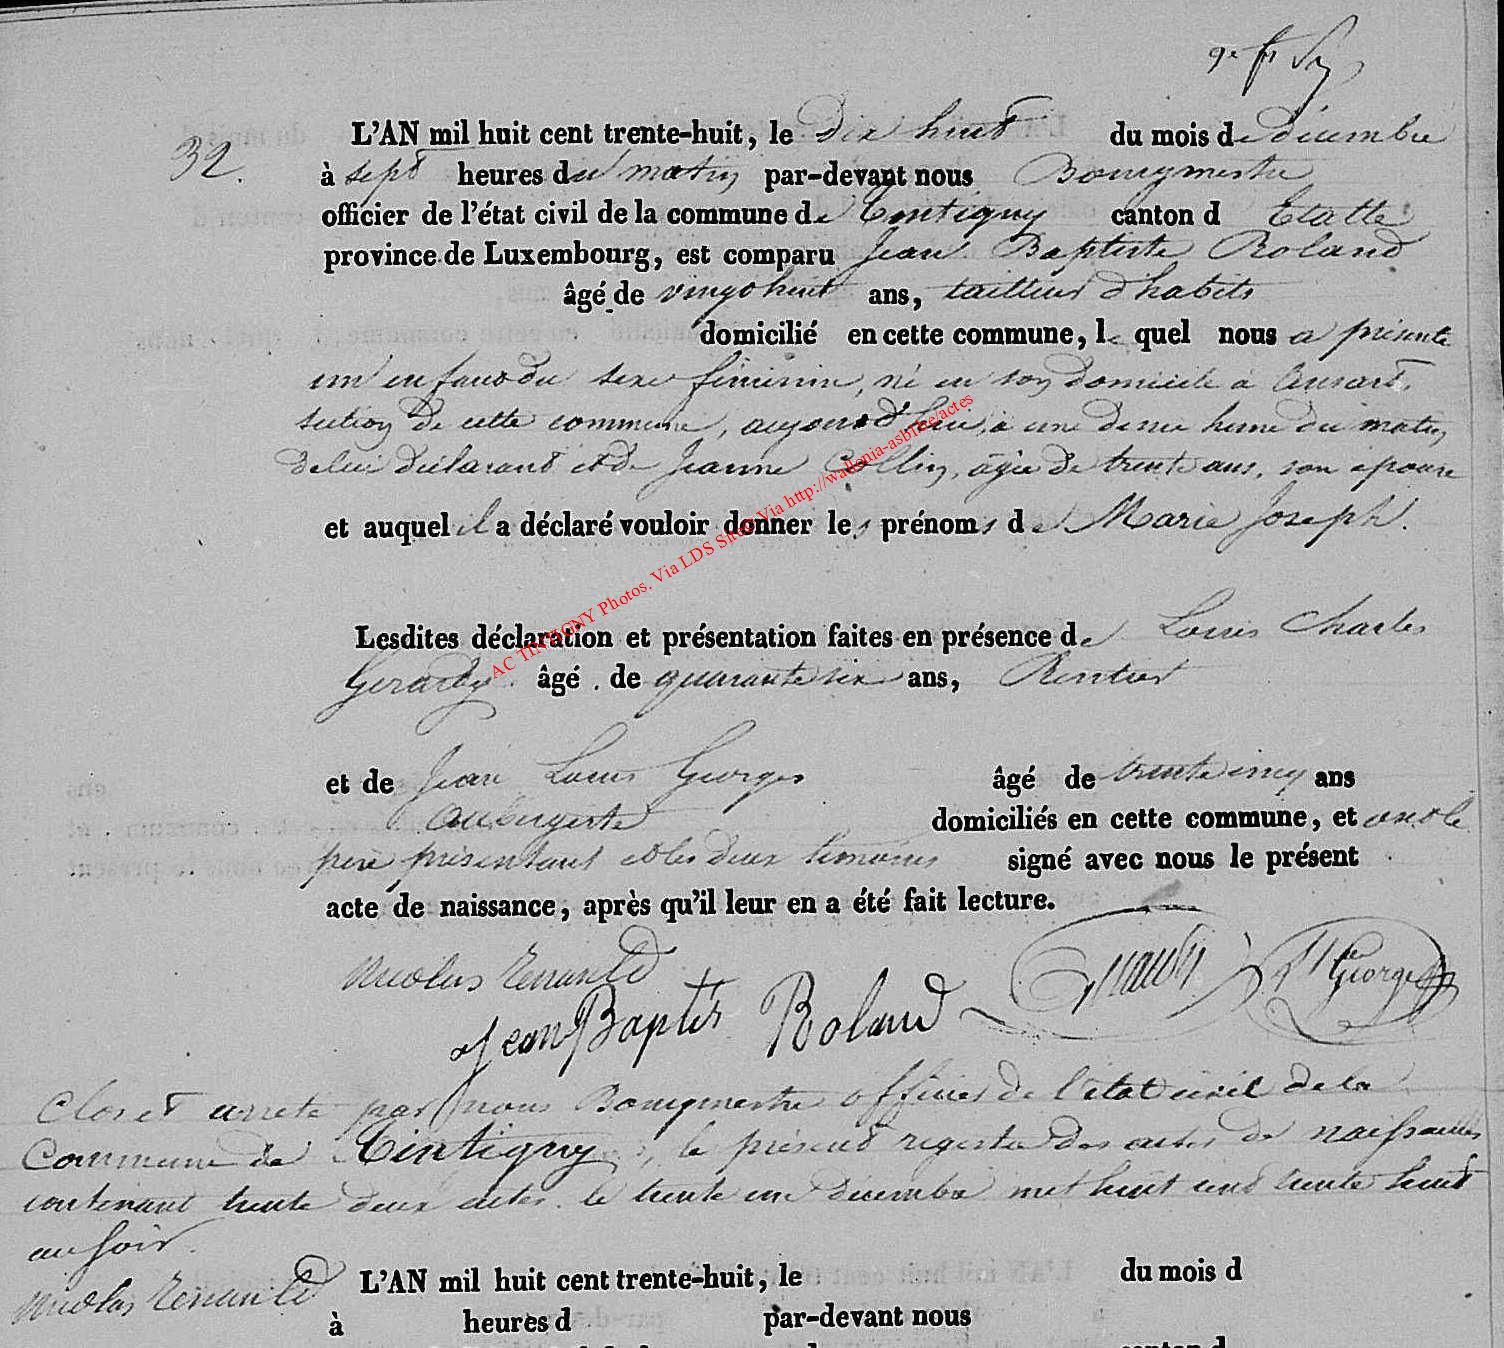 32.
L'AN mil huit cent trente-huit, le Dix huit du mois de décembre
à sept heures du matin par-devant nous Bourgmestre
officier de l'état civil de la commune de Tintigny canton d Etalle
province de Luxembourg, est comparu Jean Baptiste Roland
âgé de vingt huit ans, tailleur d'habits
domicilié en cette commune, le quel nous a présenté
un enfant du sexe féminin, né en son domicile à Ansart,
section de cette commune, aujourd'hui, à une heure du matin
de lui déclarant et de Jeanne Collin, âgée de trente ans, son épouse
et auquel il a déclaré vouloir donner les prénoms de Marie Joseph.
Lesdites déclaration et présentation faites en présence de Louis Charles
Gerardy âgé de quarante six ans, Rentier
et de Jean Louis Georges âgé de trente cinq ans
aubergiste domiciliés en cette commune, et ont le
père présentant et les deux témoins signé avec nous le présent
acte de naissance, après qu'il leur en a été fait lecture.
Nicolas Jean Baptis Roland Georges
Clos et arreté par nous Bourgmestre officier de l'état civil de la
Commune de Tintigny, le présent registre des actes de naissances
contenant trente deux actes. le trente un décembre mil huit cent trente huit
au soir.
Nicolas
L'AN mil huit cent trente-huit, le du mois d
à heures d par-devant nous
canton d
AC TINTIGNY Photos. Via LDS Via http://wallonia-asbl.be/actes